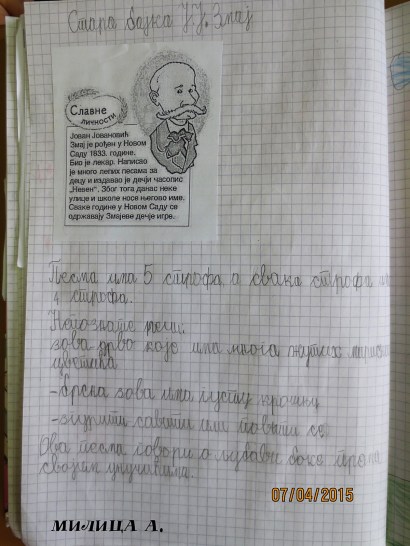 Стара бајка Ј.Ј. Змај
Славне
личности
Јован Јовановић
Змај је рођен у Новом
Саду 1833. године.
Био је лекар. Написао
је много лепих песама за
децу и издавао је дечји часопис
„Невен“. Због тога данас неке
улице и школе носе његово име.
Сваке године у Новом Саду се
одржавају Змајеве дечје игре.
Песма има 5 строфа а свака строфа
4 строфа.
Непознате речи:
зова дрво које има много жутих
цветића
-брсна зова има густу крошњу
-
савити или повити се
Ова песма говори о љубави баке према
својим унучићима.
07/04/2015
МИЛИЦА А.